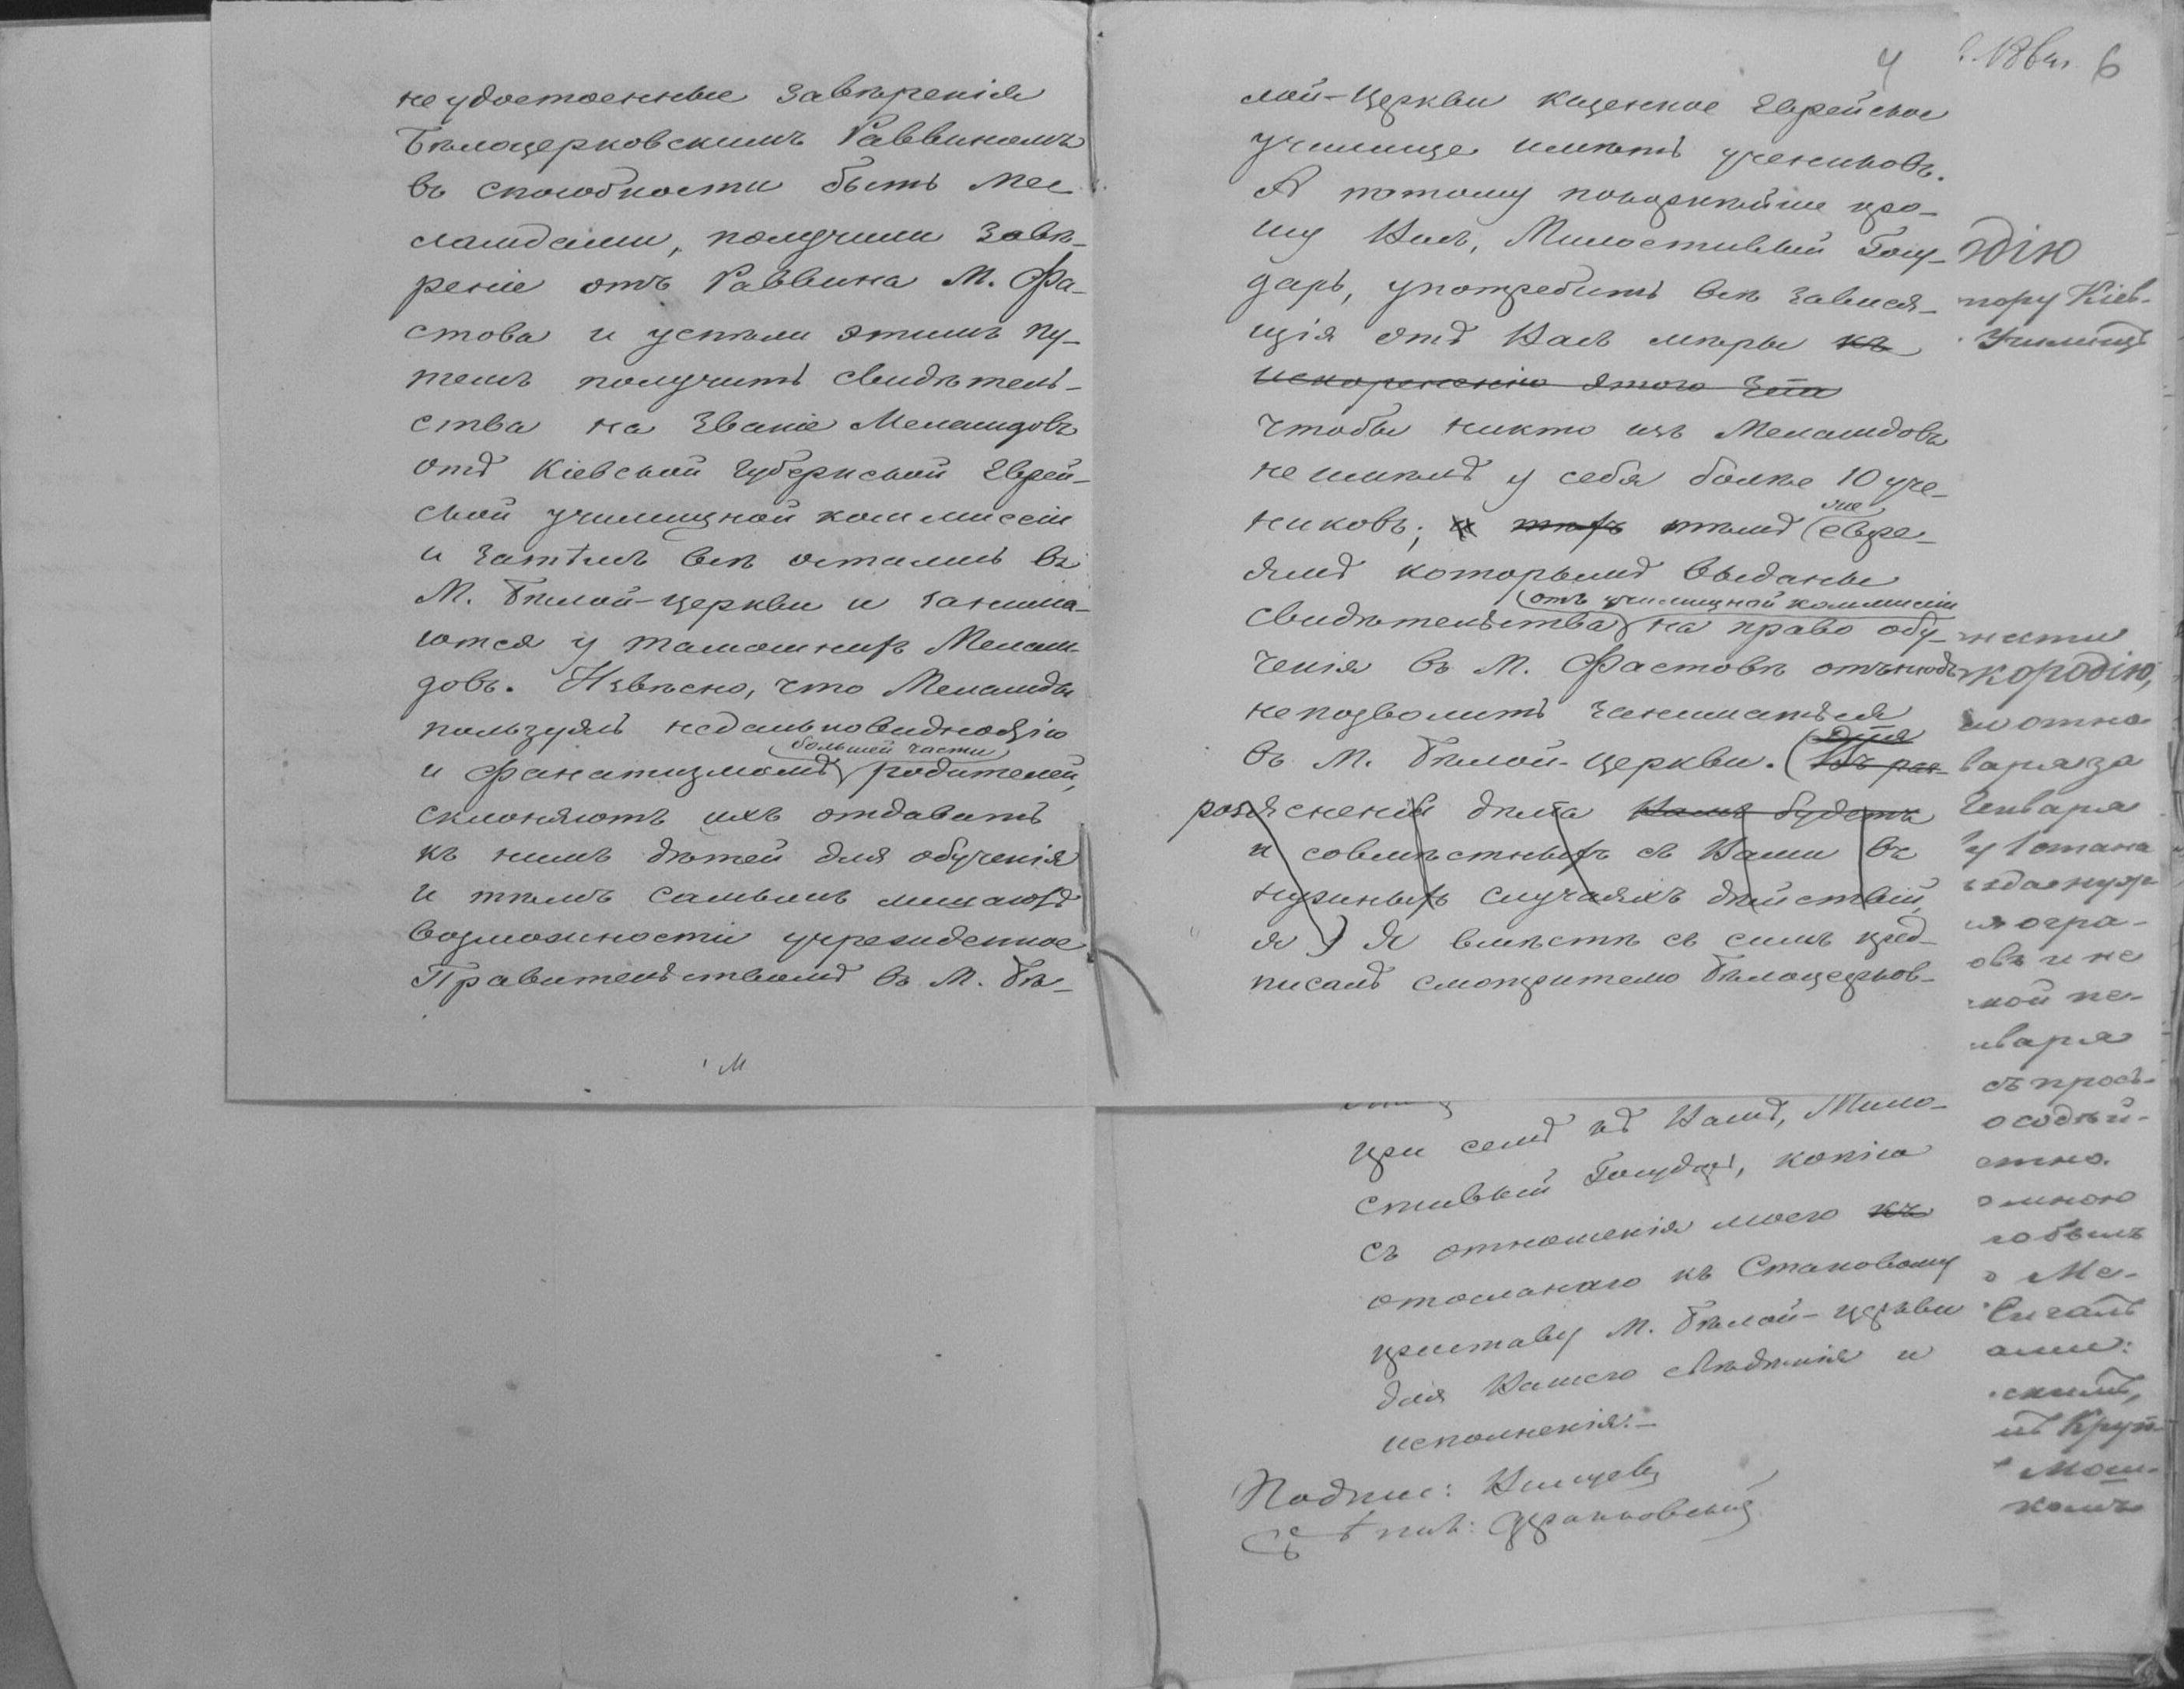 неудостоенные завѣренія
Бѣлоцерковскимъ Раввиномъ
въ способности быть Ме-
ламдами, получили завѣ-
реніе отъ Раввина М. Фа-
стова и успѣли этимъ пу-
темъ получить свидѣтель-
ства на званіе Меламдовъ
отъ Кіевской Губернской Еврей-
ской училищной коммиссіи
и затѣмъ всѣ остались въ
М. Бѣлой-Церкви и занима-
ются у тамошнихъ Мелам-
довъ. Извѣсно, что Меламды
пользуясь недальновидностію
большей части
и фанатизмомъ родителей,
склоняютъ ихъ отдавать
къ нимъ дѣтей для обученія
и тѣмъ самымъ лишаютъ
возможности учрежденное
Правительствомъ въ М. Бѣ-
4 6
лой-Церкви казенное Еврейское
училище имѣть учениковъ.
А потому покорнѣйше про-
шу Васъ, Милостивый Госу-
дарь, употребить всѣ завися-
щія отъ Васъ мѣры къ
искорененію этого зла
чтобы никто изъ Меламдовъ
не имѣлъ у себя болѣе 10 уче-
никовъ; и тѣхъ тѣмъ же евре-
ямъ которымъ выданы
отъ училищной коммиссіи
свидѣтельства на право обу-
ченія въ М. Фастовѣ отънюдь
не позволить заниматься
въ М. Бѣлой-Церкви. для
разъясненія дѣла Вамъ будетъ
и совмѣстныхъ съ Вами въ
нужныхъ случаяхъ дѣйствій,
я Я вмѣстѣ съ симъ пред-
писалъ смотрителю Бѣлоцерков-
при семъ къ Вамъ, Мило-
стивый Государь, копію
съ отношенія моего къ
отосланаго къ Становому
приставу М. Бѣлой-Церкви
для Вашего свѣдѣнія и
исполненія.-
Подпис:
одію
тору Кіев-
Училищъ
ности
кородію,
отно
варя за
Января
у 1 стана
огра-
овъ и не
ской пе-
нваря
съ прось-
о содѣй-
стно.
о мною
собымъ
о Ме-
ами:
скимъ,
Круп-
Мош-
комъ